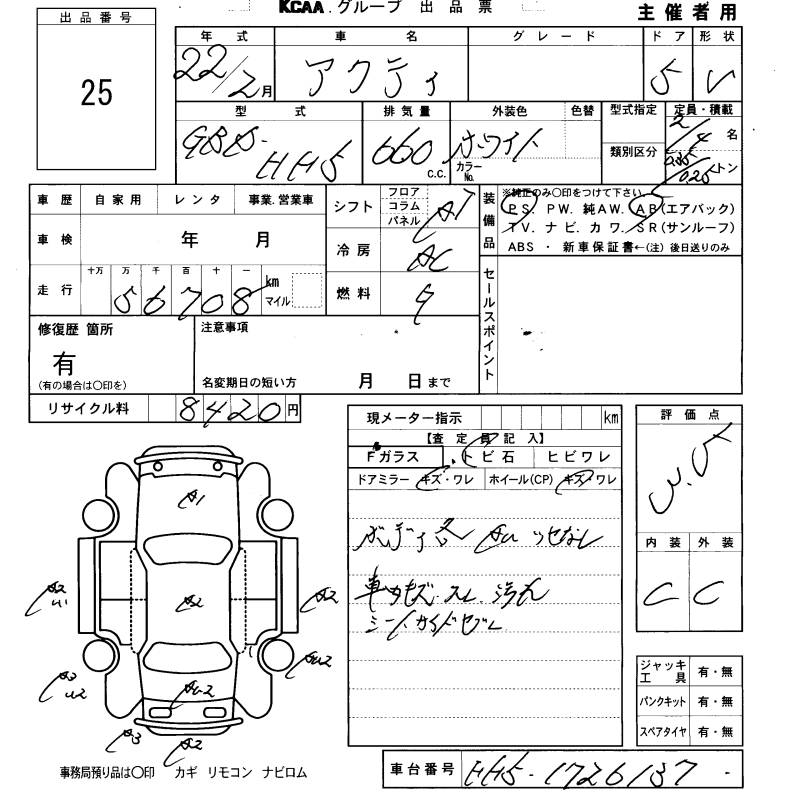 KCAA.グループ 出品票
主催者用
出品番号
25
年式 車名 グレード ドア 形状
22/2月 アクティ 5 V
型式 排気量 外装色 色替 型式指定 定員・積載
GBD-HH5 660 C.C. ホワイト カラーNo. 類別区分 2/4名
0.35/0.25トン
車歴 自家用 レンタ 事業.営業車
車検 年 月
走行 十万 万 千 百 十 一 km マイル
56708
シフト フロア コラム パネル AT
冷房 AC
燃料 G
装備品 ※純正のみ〇印をつけて下さい
P S. P W. 純A W. A B (エアバック)
T V. ナ ビ. カ ワ. S R (サンルーフ)
ABS ・ 新車保証書←(注) 後日送りのみ
セールスポイント
修復歴 箇所 注意事項
有
(有の場合は〇印を) 名変期日の短い方 月 日まで
リサイクル料 8420円
現メーター指示 km
【査定員記入】
Fガラス トビ石 ヒビワレ
ドアミラー キズ・ワレ ホイール(CP) キズ・ワレ
ボディ各 AU ツヤなし
車内キズ.スレ.汚れ
シートサイドヤブレ
評価点
内装 外装
C C
A1
A2
A2
U1
A2
A3
U2
AU2
AU2
A3
A2
ジャッキ工具 有・無
パンクキット 有・無
スペアタイヤ 有・無
事務局預り品は〇印 カギ リモコン ナビロム
車台番号 HH5-1726137-